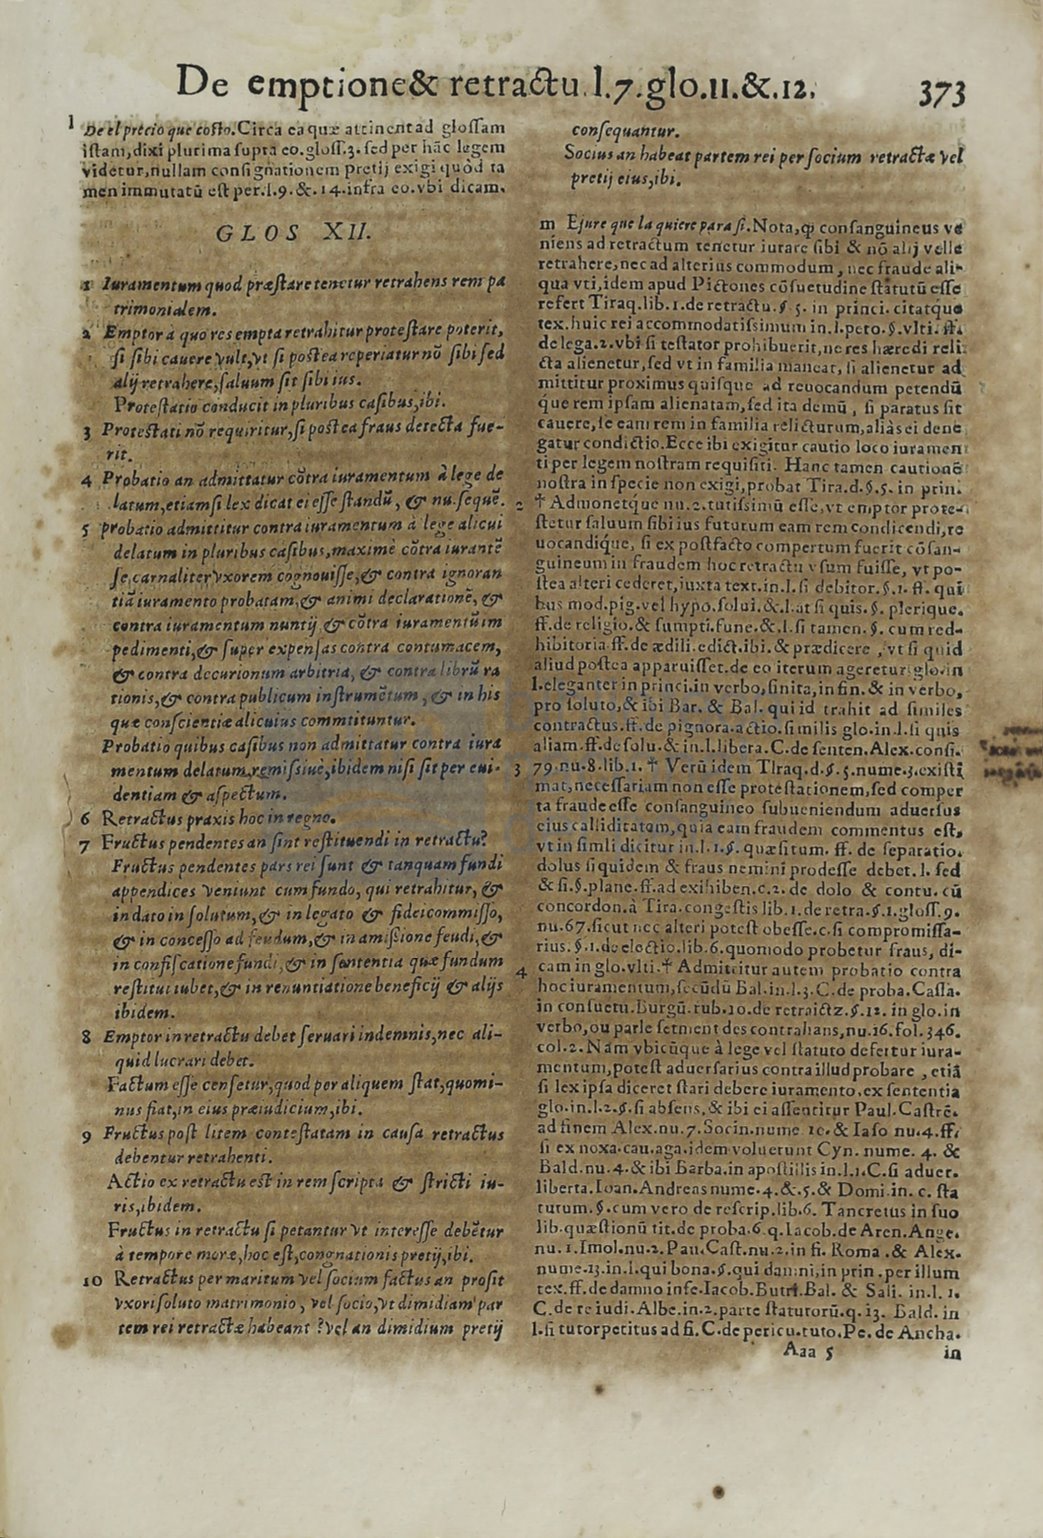 De emptione& retractu.l.7.glo.11.&.12.
373
l De el precio que costo.Circa ea quæ attinent ad glossam
istam,dixi plurima supra eo.gloss.3.sed per hāc legem
videtur,nullam consignationem pretij exigi quòd ta
men immutatū est per.l.9.&.14.infra eo.vbi dicam.
GLOS XII.
1 Iuramentum quod præstare tenetur retrahens rem pa
trimonialem.
2 Emptor à quo res empta retrahitur protestare poterit,
si sibi cauere vult,vt si postea reperiatur nō sibi sed
alij retrahere,saluum sit sibi ius.
Protestatio conducit in pluribus casibus,ibi.
3 Protestati nō requiritur,si postea fraus detecta fue-
rit.
4 Probatio an admittatur cōtra iuramentum à lege de
latum,etiamsi lex dicat ei esse standū, & nu.sequē.
5 Probatio admittitur contra iuramentum à lege alicui
delatum in pluribus casibus,maximè cōtra iurantē
se,carnaliter vxorem cognouisse,& contra ignoran
tiā iuramento probatam,& animi declarationē, &
contra iuramentum nuntij, & cōtra iuramentum im
pedimenti,& super expensas contra contumacem,
& contra decurionum arbitria, & contra librū ra
tionis,& contra publicum instrumētum, & in his
quæ conscientiæ alicuius commtituntur.
Probatio quibus casibus non admittatur contra iura
mentum delatum,remissiue,ibidem nisi sit per eui-
dentiam & aspectum.
6 Retractus praxis hoc in regno.
7 Fructus pendentes an sint restituendi in retractu?
Fructus pendentes pars rei sunt & tanquam fundi
appendices veniunt cum fundo, qui retrahitur, &
in dato in solutum,& in legato & fideicommisso,
& in concesso ad feudum,& in amissione feudi,&
in confiscatione fundi,& in sententia quæ fundum
restitui iubet,& in renuntiatione beneficij & alijs
ibidem.
8 Emptor in retractu debet seruari indemnis,nec ali-
quid lucrari debet.
Factum esse censetur,quod per aliquem stat,quomi-
nus fiat,in eius præiudicium,ibi.
9 Fructus post litem contestatam in causa retractus
debentur retrahenti.
Actio ex retractu est in rem scripta & stricti iu-
ris,ibidem.
Fructus in retractu si petantur vt interesse debētur
à tempore moræ,hoc est,congnationis pretij,ibi.
10 Retractus per maritum vel socium factus an prosit
vxori soluto matrimonio, vel socio,vt dimidiam par
tem rei retractæ habeant? vel an dimidium pretij
consequantur.
Socius an habeat partem rei per socium retractæ vel
pretij eius,ibi.
m Ejure que la quiere para si.Nota,q̃ consanguineus ve
niens ad retractum tenetur iurare sibi & nō alij velle
retrahere,nec ad alterius commodum, nec fraude ali-
qua vti,idem apud Pictones cōsuetudine statutū esse
refert Tiraq.lib.1.de retractu.§.5. in princi.citatque
tex.huic rei accommodatissimum in.l.peto.§.vlti.ff.
de lega.2.vbi si testator prohibuerit,ne res hæredi reli
cta alienetur,sed vt in familia maneat, si alienetur ad
mittitur proximus quisque ad reuocandum petendū
q́ue rem ipsam alienatam,sed ita demū, si paratus sit
cauere,se eam rem in familia relicturum,aliàs ei dene
gatur condictio.Ecce ibi exigitur cautio loco iuramen
ti per legem nostram requisiti. Hanc tamen cautionē
nostra in specie non exigi,probat Tira.d.§.5. in prin.
2 † Admonetq́ue nu.2.tutissimū esse,vt emptor prote-
stetur saluum sibi ius futurum eam rem condicendi,re
uocandiq́ue, si ex postfacto compertum fuerit cōsan-
guineum in fraudem hoc retractu vsum fuisse, vt po-
stea alteri cederet,iuxta text.in.l.si debitor.§.1. ff. qui
bus mod.pig.vel hypo.solui.&.l.at si quis.§. plerique.
ff.de religio.& sumpti.fune.&.l.si tamen.§. cum red-
hibitoria ff.de ædili.edict.ibi.& prædicere, vt si quid
aliud postea apparuisset.de eo iterum ageretur glo.in
l.eleganter in princi.in verbo,finita,in fin.& in verbo,
pro soluto,& ibi Bar. & Bal. qui id trahit ad similes
contractus.ff.de pignora.actio.similis glo.in.l.si quis
aliam.ff.de solu.& in.l.libera.C.de senten.Alex.consi.
3 79.nu.8.lib.1.† Verū idem TIraq.d.§.5.nume.3.existi
mat,necessariam non esse protestationem,sed comper
ta fraude esse consanguineo subueniendum aduersus
eius calliditatem,quia eam fraudem commentus est,
vt in simli dicitur in.l.1.§. quæsitum. ff. de separatio.
dolus siquidem & fraus nemini prodesse debet.l. sed
& si.§.plane.ff.ad exihiben.c.2.de dolo & contu. cū
concordon.à Tira.congestis lib.1.de retra.§.1.gloss.9.
nu.67.sicut nec alteri potest obesse.c.si compromissa-
rius.§.1.de electio.lib.6.quomodo probetur fraus, di-
4 cam in glo.vlti.† Admittitur autem probatio contra
hoc iuramentum,secūdū Bal.in.l.3.C.de proba.Cassa.
in consuetu.Burgū.rub.10.de retraictz.§.12. in glo.in
verbo,ou parle serment des contrahans,nu.16.fol.346.
col.2.Nam vbicūque à lege vel statuto defertur iura-
mentum,potest aduersarius contra illud probare, etiā
si lex ipsa diceret stari debere iuramento.ex sententia
glo.in.l.2.§.si absens,& ibi ei assentitur Paul.Castrē.
ad finem Alex.nu.7.Socin.nume.10.& Iaso nu.4.ff.
si ex noxa.cau.aga.idem voluerunt Cyn. nume. 4. &
Bald.nu.4.& ibi Barba.in apostillis in.l.1.C.si aduer.
liberta.Ioan.Andreas nume.4.&.5.& Domi.in. c. sta
tutum.§.cum vero de rescrip.lib.6. Tancretus in suo
lib.quæstionū tit.de proba.6.q.Iacob.de Aren.Ange.
nu.1.Imol.nu.2.Pau.Cast.nu.2.in fi. Roma.& Alex.
nume.13.in.l.qui bona.§.qui damni,in prin.per illum
tex.ff.de damno infe.Iacob.Butri.Bal. & Sali. in.l. 1.
C.de re iudi.Albe.in.2.parte statutorū.q.13. Bald. in
l.si tutor petitus ad fi.C.de pericu.tuto.Pe.de Ancha.
Aaa 5
in